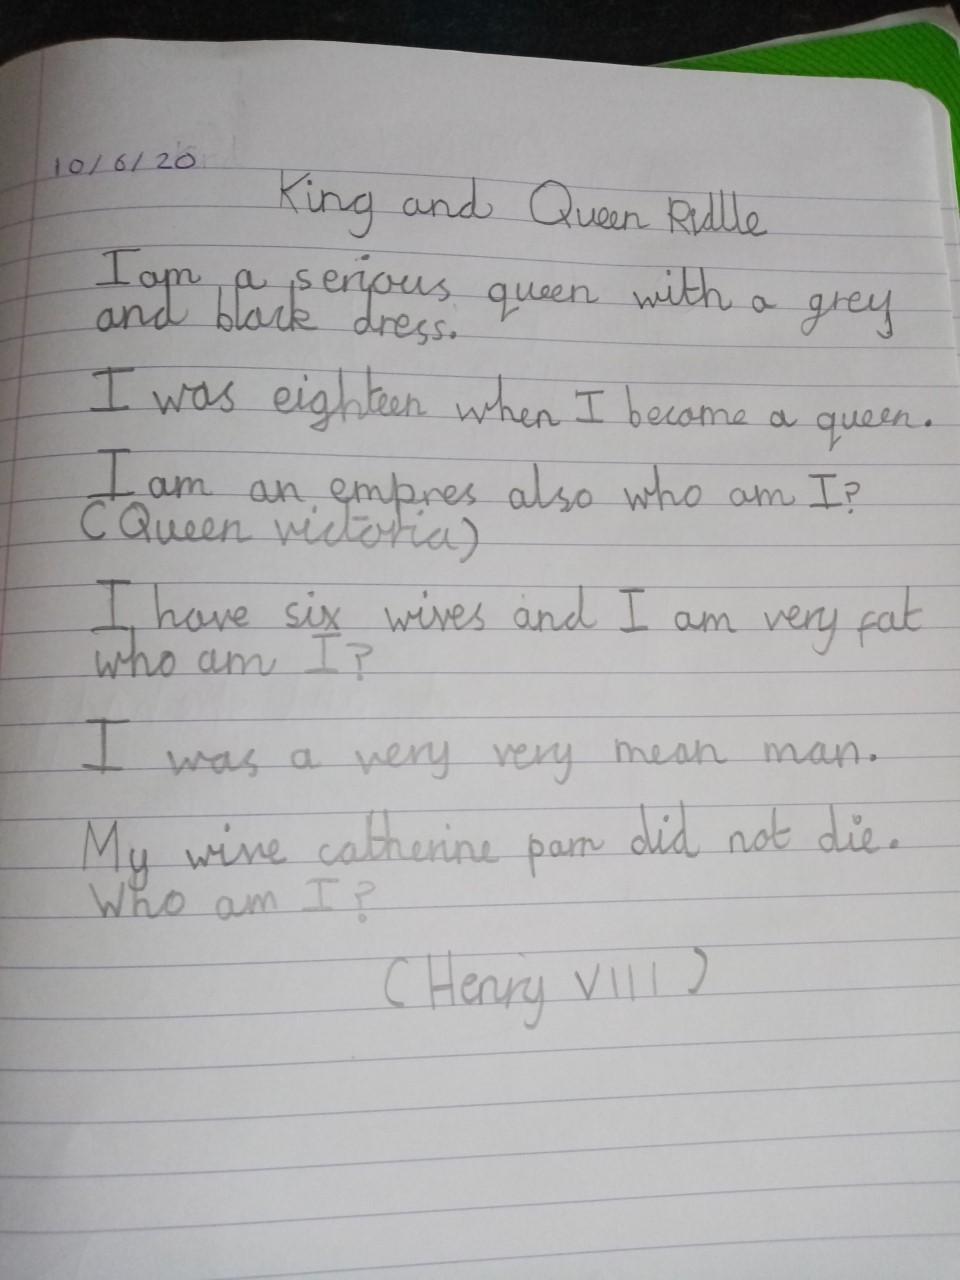 10/6/20
King and Queen Ridlle
I am a serious queen with a grey
and black dress.
I was eighteen when I become a queen.
I am an empres also who am I?
(Queen victoria)
I have six wives and I am very fat
who am I?
I was a very very mean man.
My wive catherine parr did not die.
Who am I?
(Henry VIII)